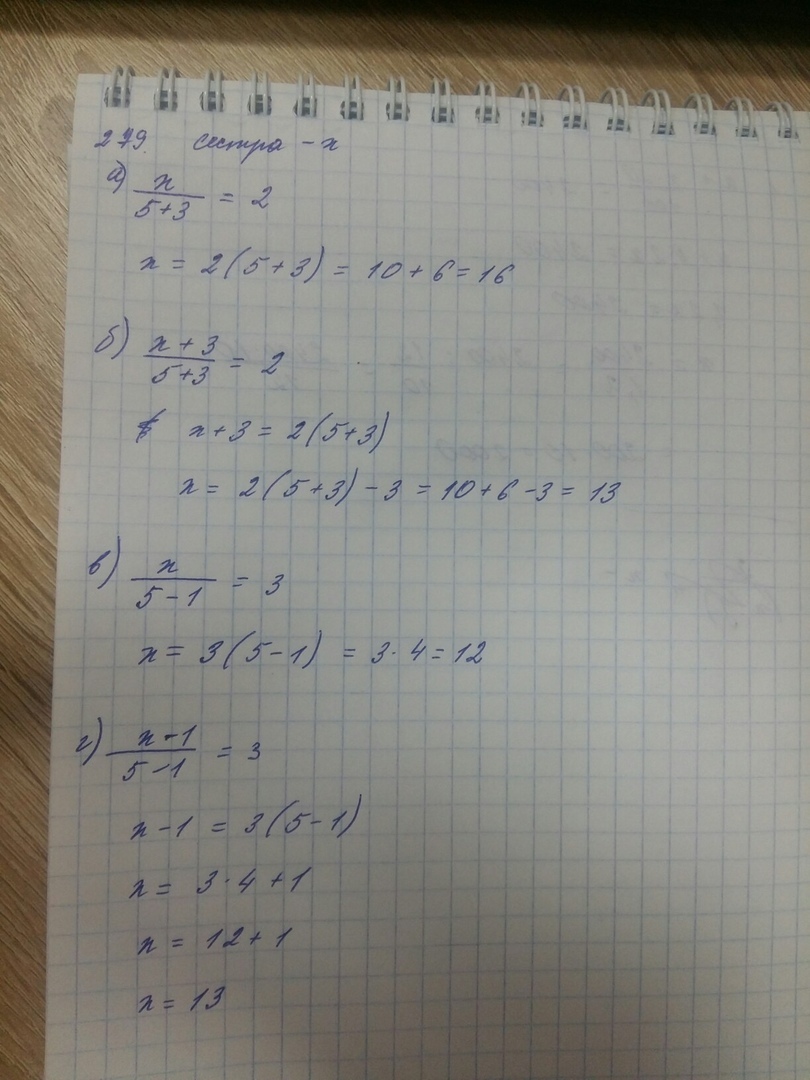 279. сестра - x
а) x / 5+3 = 2
x = 2(5+3) = 10+6=16
б) x+3 / 5+3 = 2
x+3 = 2(5+3)
x = 2(5+3)-3 = 10+6-3 = 13
в) x / 5-1 = 3
x = 3(5-1) = 3·4=12
г) x-1 / 5-1 = 3
x-1 = 3(5-1)
x = 3·4+1
x = 12+1
x = 13